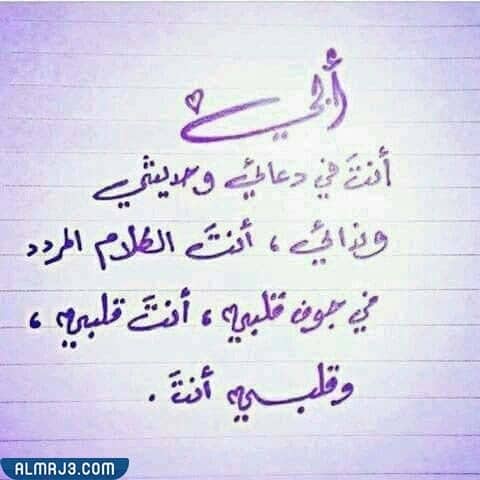 أبي
أنتَ في دعائي وحديثي
وندائي ، أنتَ الكلام المردد
في جوف قلبي ، أنتَ قلبي ،
وقلبي أنتَ .
ALMRJ3.COM